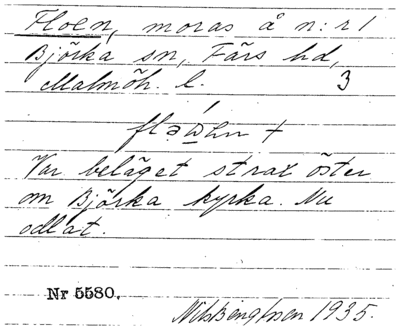 Floen, moras å n:r 1
Björka sn, Färs hd,
Malmöh. l. 3
+
Var beläget strax öster
om Björka kyrka. Nu
odlat.
Nr 5580.
Nils Bengtsson 1935.